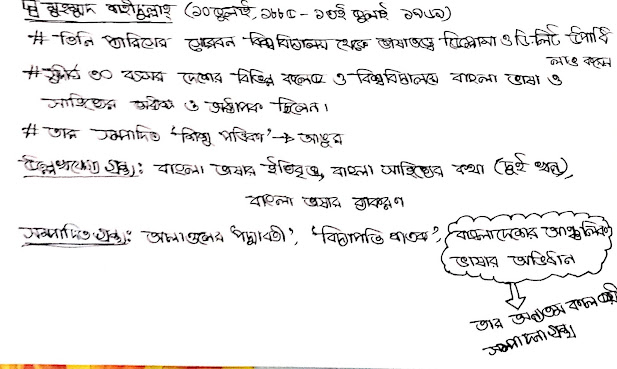 মুহম্মদ শহীদুল্লাহ (১০ জুলাই, ১৮৮৫ - ১৩ই জুলাই ১৯৬৯)
# তিনি প্যারিসের সোরবন বিশ্ববিদ্যালয় থেকে ভাষাতত্ত্বে ডিপ্লোমা ও ডি.লিট উপাধি
লাভ করেন
# সুদীর্ঘ ৩০ বৎসর দেশের বিভিন্ন কলেজ ও বিশ্ববিদ্যালয়ে বাংলা ভাষা ও
সাহিত্যের ও অধ্যাপক ছিলেন।
# তার সম্পাদিত 'শিশু পত্রিকা' → আঙুর
উল্লেখযোগ্য গ্রন্থ: বাংলা ভাষার ইতিবৃত্ত, বাংলা সাহিত্যের কথা (দুই খন্ড),
বাংলা ভাষার ব্যাকরণ
সম্পাদিত গ্রন্থ: আলাওলের 'পদ্মাবতী', 'বিদ্যাপতি শতক',
বাংলাদেশের আঞ্চলিক
ভাষার অভিধান
তার অন্যতম কালজয়ী
সম্পাদনা গ্রন্থ